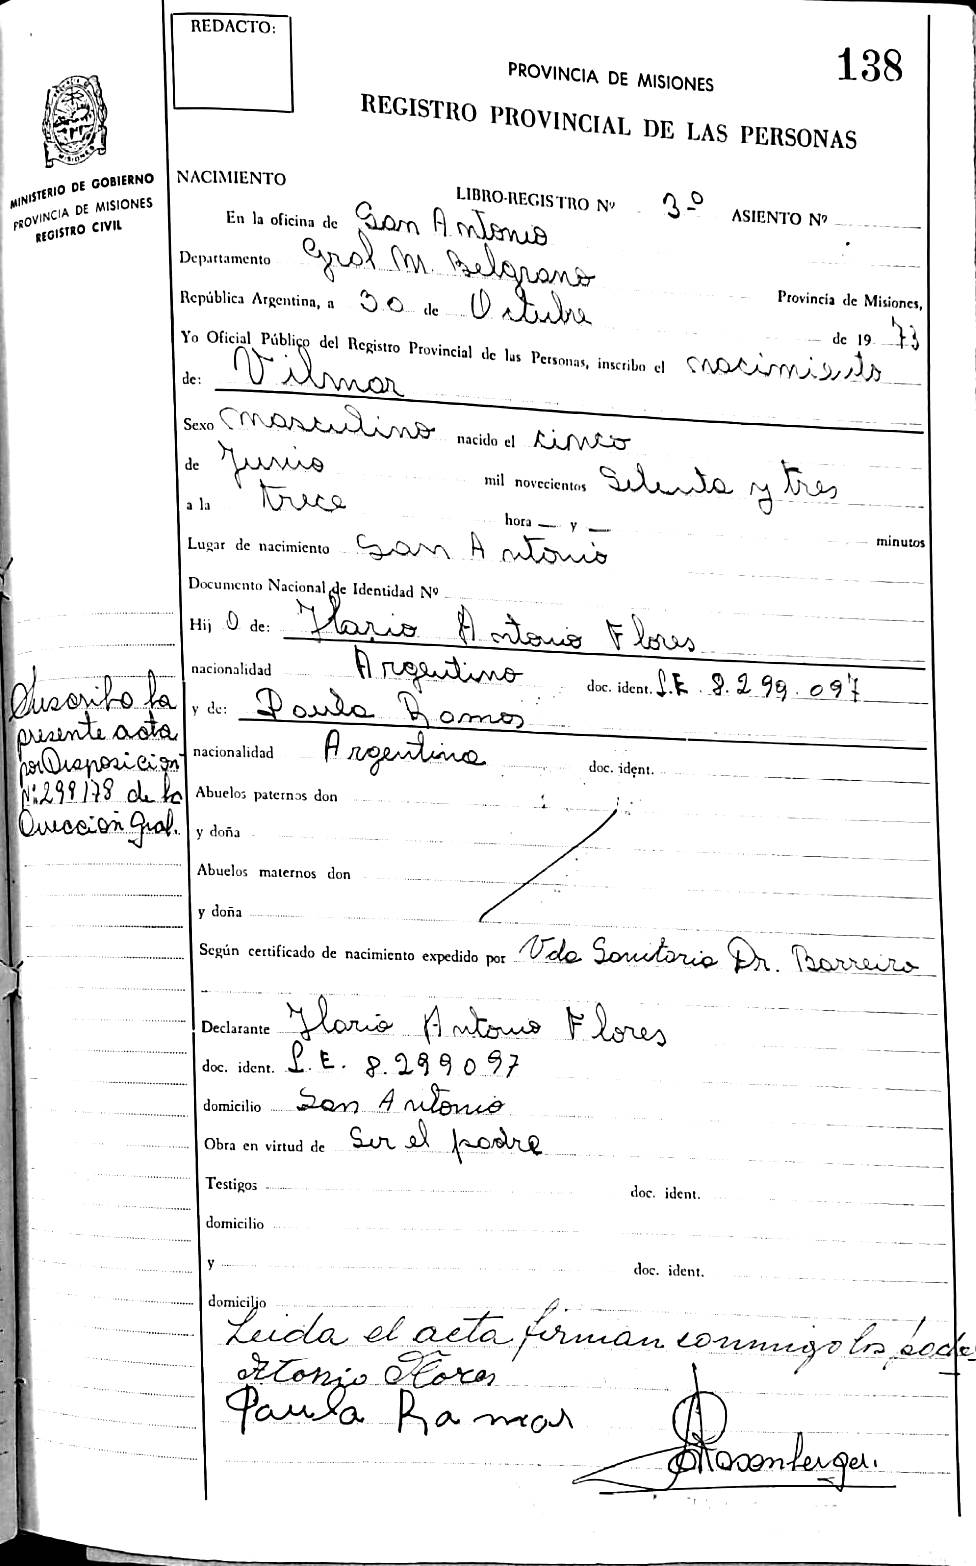 REDACTO:
138
PROVINCIA DE MISIONES
REGISTRO PROVINCIAL DE LAS PERSONAS
MISIONES
MINISTERIO DE GOBIERNO
PROVINCIA DE MISIONES
REGISTRO CIVIL
NACIMIENTO
LIBRO-REGISTRO Nº 3º ASIENTO Nº
En la oficina de San Antonio
Departamento Gral M. Belgrano
Provincia de Misiones,
República Argentina, a 30 de Octubre de 1973
Yo Oficial Público del Registro Provincial de las Personas, inscribo el nacimiento
de: Vilmar
Sexo masculino nacido el cinco
de Junio mil novecientos Setenta y tres
a la trece hora — y — minutos
Lugar de nacimiento San Antonio
Documento Nacional de Identidad Nº
Hij O de: Ilario Antonio Flores
nacionalidad Argentino doc. ident. L.E. 8.299.097
y de: Paula Ramos
nacionalidad Argentina doc. ident.
Suscribo la
presente acta
por Disposición
Nº:299/78 de la
Dirección Gral.
Abuelos paternos don
y doña
Abuelos maternos don
y doña
Según certificado de nacimiento expedido por Vda Sanitaria Dr. Barreiro
Declarante Ilario Antonio Flores
doc. ident. L.E. 8.299097
domicilio San Antonio
Obra en virtud de Ser el padre
Testigos doc. ident.
domicilio
y doc. ident.
domicilio
Leida el acta firman conmigo los padres
Flores
Paula Ramos
Rosenberger.